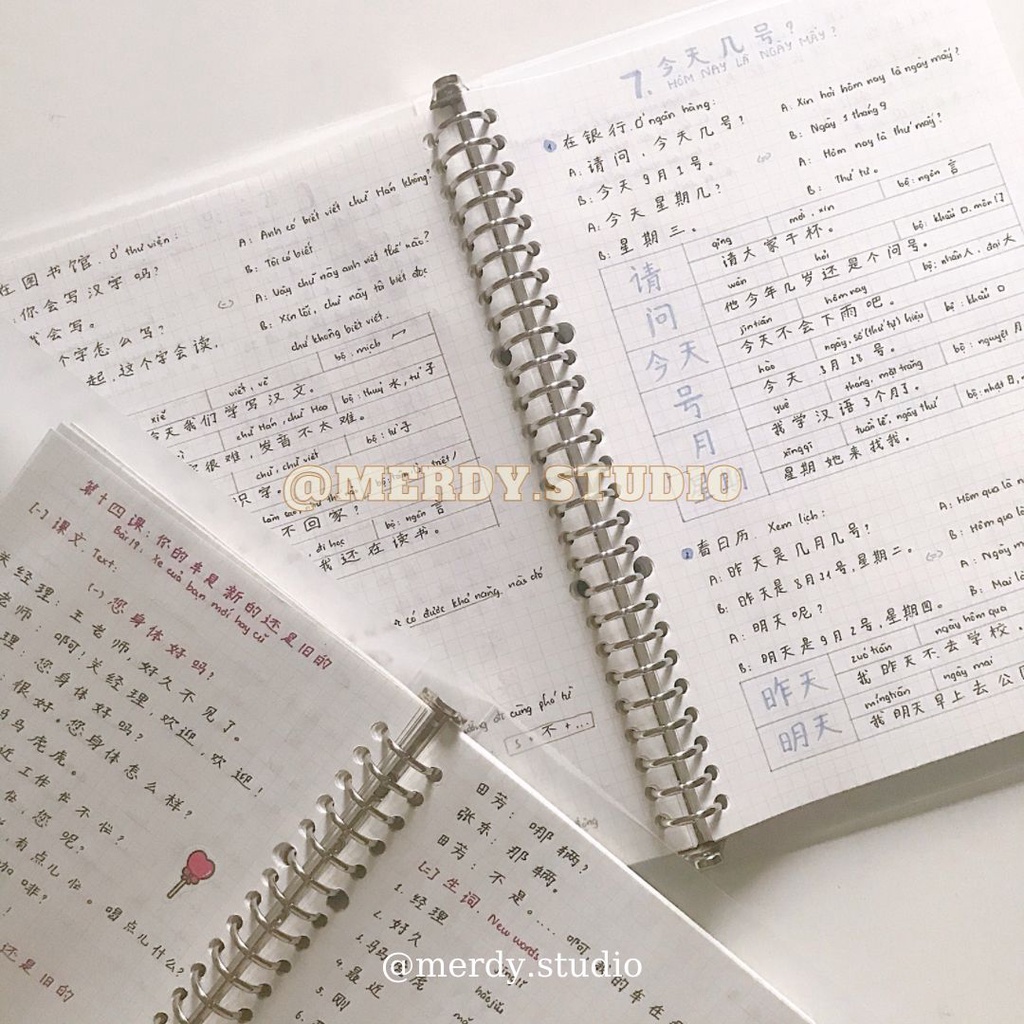 7. 今天几号?
HÔM NAY LÀ NGÀY MẤY?
1 在银行. Ở ngân hàng:
A: 请问, 今天几号?
B: 今天 9月 1号。
A: 今天星期几?
B: 星期三。
A: Xin hỏi hôm nay là ngày mấy?
B: Ngày 1 tháng 9
A: Hôm nay là thứ mấy?
B: Thứ tư.
请 qǐng mời, xin bộ: ngôn 言
请大家干杯。
问 wèn hỏi bộ: khẩu 口, môn 门
他今年几岁还是个问号。
今天 jīntiān hôm nay bộ: nhân 人, đại 大
今天不会下雨吧。
号 hào ngày, số (thứ tự) hiệu bộ: khẩu 口
今天 3月 28号。
月 yuè tháng, mặt trăng bộ: nguyệt
我学汉语3个月了。
xīngqī tuần lễ, ngày thứ bộ: nhật 日,
星期 她来找我。
2 看日历. Xem lịch:
A: 昨天是几月几号?
B: 昨天是 8月31号, 星期二。
A: 明天呢?
B: 明天是 9月2号, 星期四。
A: Hôm qua là
B: Hôm qua là
A: Ngày
B: Mai là
昨天 zuótiān ngày hôm qua
我昨天不去学校.
明天 míngtiān ngày mai
我明天早上去公
在图书馆. Ở thư viện:
你会写汉字吗?
会写。
个字怎么写?
起, 这个字会读,
A: Anh có biết viết chữ Hán không?
B: Tôi có biết
A: Vậy chữ này anh viết thế nào?
B: Xin lỗi, chữ này tôi biết đọc
chứ không biết viết.
xiě viết, vẽ bộ: mịch
今天我们学写汉文。
chữ Hán, chữ Hoa bộ: thuỷ 水, tử 子
很难, 发音不太难。
chữ, chữ viết bộ: tử 子
识字。
不回家?
đi học bộ: ngôn 言
我还在读书。
có được khả năng nào đó
cùng phó từ
S + 不 + ...
@MERDY.STUDIO
第十四课: 你的车是新的还是旧的
Bài 14: Xe của bạn mới hay cũ
(一) 课文. Text:
(一) 您身体好吗?
关经理: 王老师, 好久不见了。
老师: 啊! 关经理, 欢迎, 欢迎!
理: 您身体好吗?
: 很好。您身体怎么样?
马马虎虎。
近工作忙不忙?
忙, 您呢?
有点儿忙。喝点儿什么?
还是旧的
田芳: 哪辆?
张东: 那辆。
田芳: 不是。....
(二) 生词. New words
1. 经理
2. 好久
3. 马马虎虎
4. 最近
5. 刚
6.
hǎojiǔ
@merdy.studio